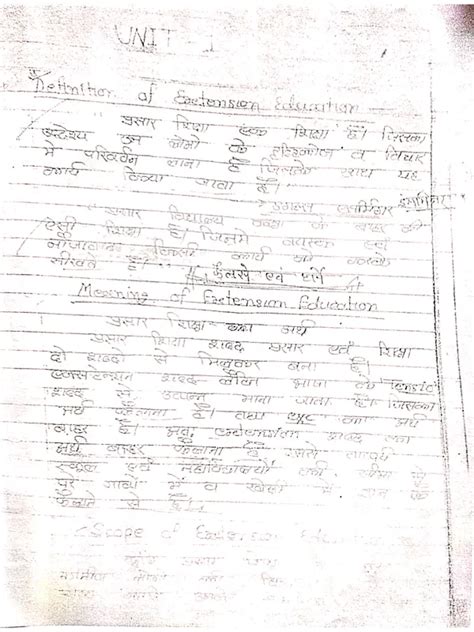 UNIT - 1
Definition of Extension Education
प्रसार शिक्षा एक शिक्षा है। जिसका
उद्देश्य उन लोगो के दृष्टिकोण व विचार
मे परिवर्तन लाना है जिनके साथ यह
कार्य किया जाता है।
डगलस एसमिंगर
प्रसार विद्यालय कक्षा के बाहर की
ऐसी शिक्षा है। जिसमे वयस्क एवं
नौजवान किसी कार्य को करके
सीखते है।
कैलसे एवं हर्ने
Meaning of Extension Education
प्रसार शिक्षा का अर्थ
प्रसार शिक्षा शब्द प्रसार एवं शिक्षा
दो शब्दो से मिलकर बना है।
एक्सटेन्शन शब्द लैटिन भाषा के Tensio
शब्द से उत्पन्न माना जाता है। जिसका
अर्थ फैलाना है। तथा का अर्थ
बाहर है। अतः extension शब्द का
अर्थ बाहर फैलाना है इससे तात्पर्य
स्कूल एवं महाविद्यालयो की सीमा से
दूर गावो में व खेतो में ज्ञान के
फैलाने से है।
Scope of Extension